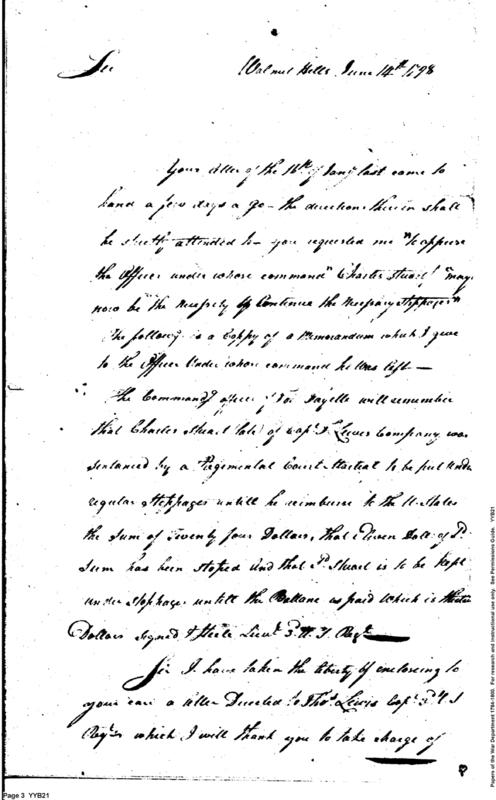 Sir Walnut Hills June 14th 1798
Your letter of the 16th of Jany last came to
hand a few days a go - the directions therein shall
be strictly attended to - you requested me "to apprise
the Officer under whose command" Charles Stuart "may
now be the necessity of Continue the necessary stoppages"
The followg is a Coppy of a Memorandum which I gave
to the Officer Under whose command he was left —
The Commandg officer of Fort Fayette will remember
that Charles Stuart late of Capt T Lewis Company was
sentanced by a Regimental Court Martial to be put under
regular stoppages untill he reimburse to the U. States
the Sum of Twenty four Dollars, that Eleven Dolls of Sd
Sum has been stoped and that Sd Stuart is to be kept
under stoppages untill the Ballane is paid which is thirteen
Dollars Signed J Steele Lieut 3d U S Regt
Sir I have taken the liberty of enclosing to
your care a letter Directed to Thos Lewis Capt 3d U S
Regt which I will thank you to take charge of
Page 3 YYB21
Papers of the War Department 1784-1800. For research and instructional use only. See Permissions Guide. YYB21